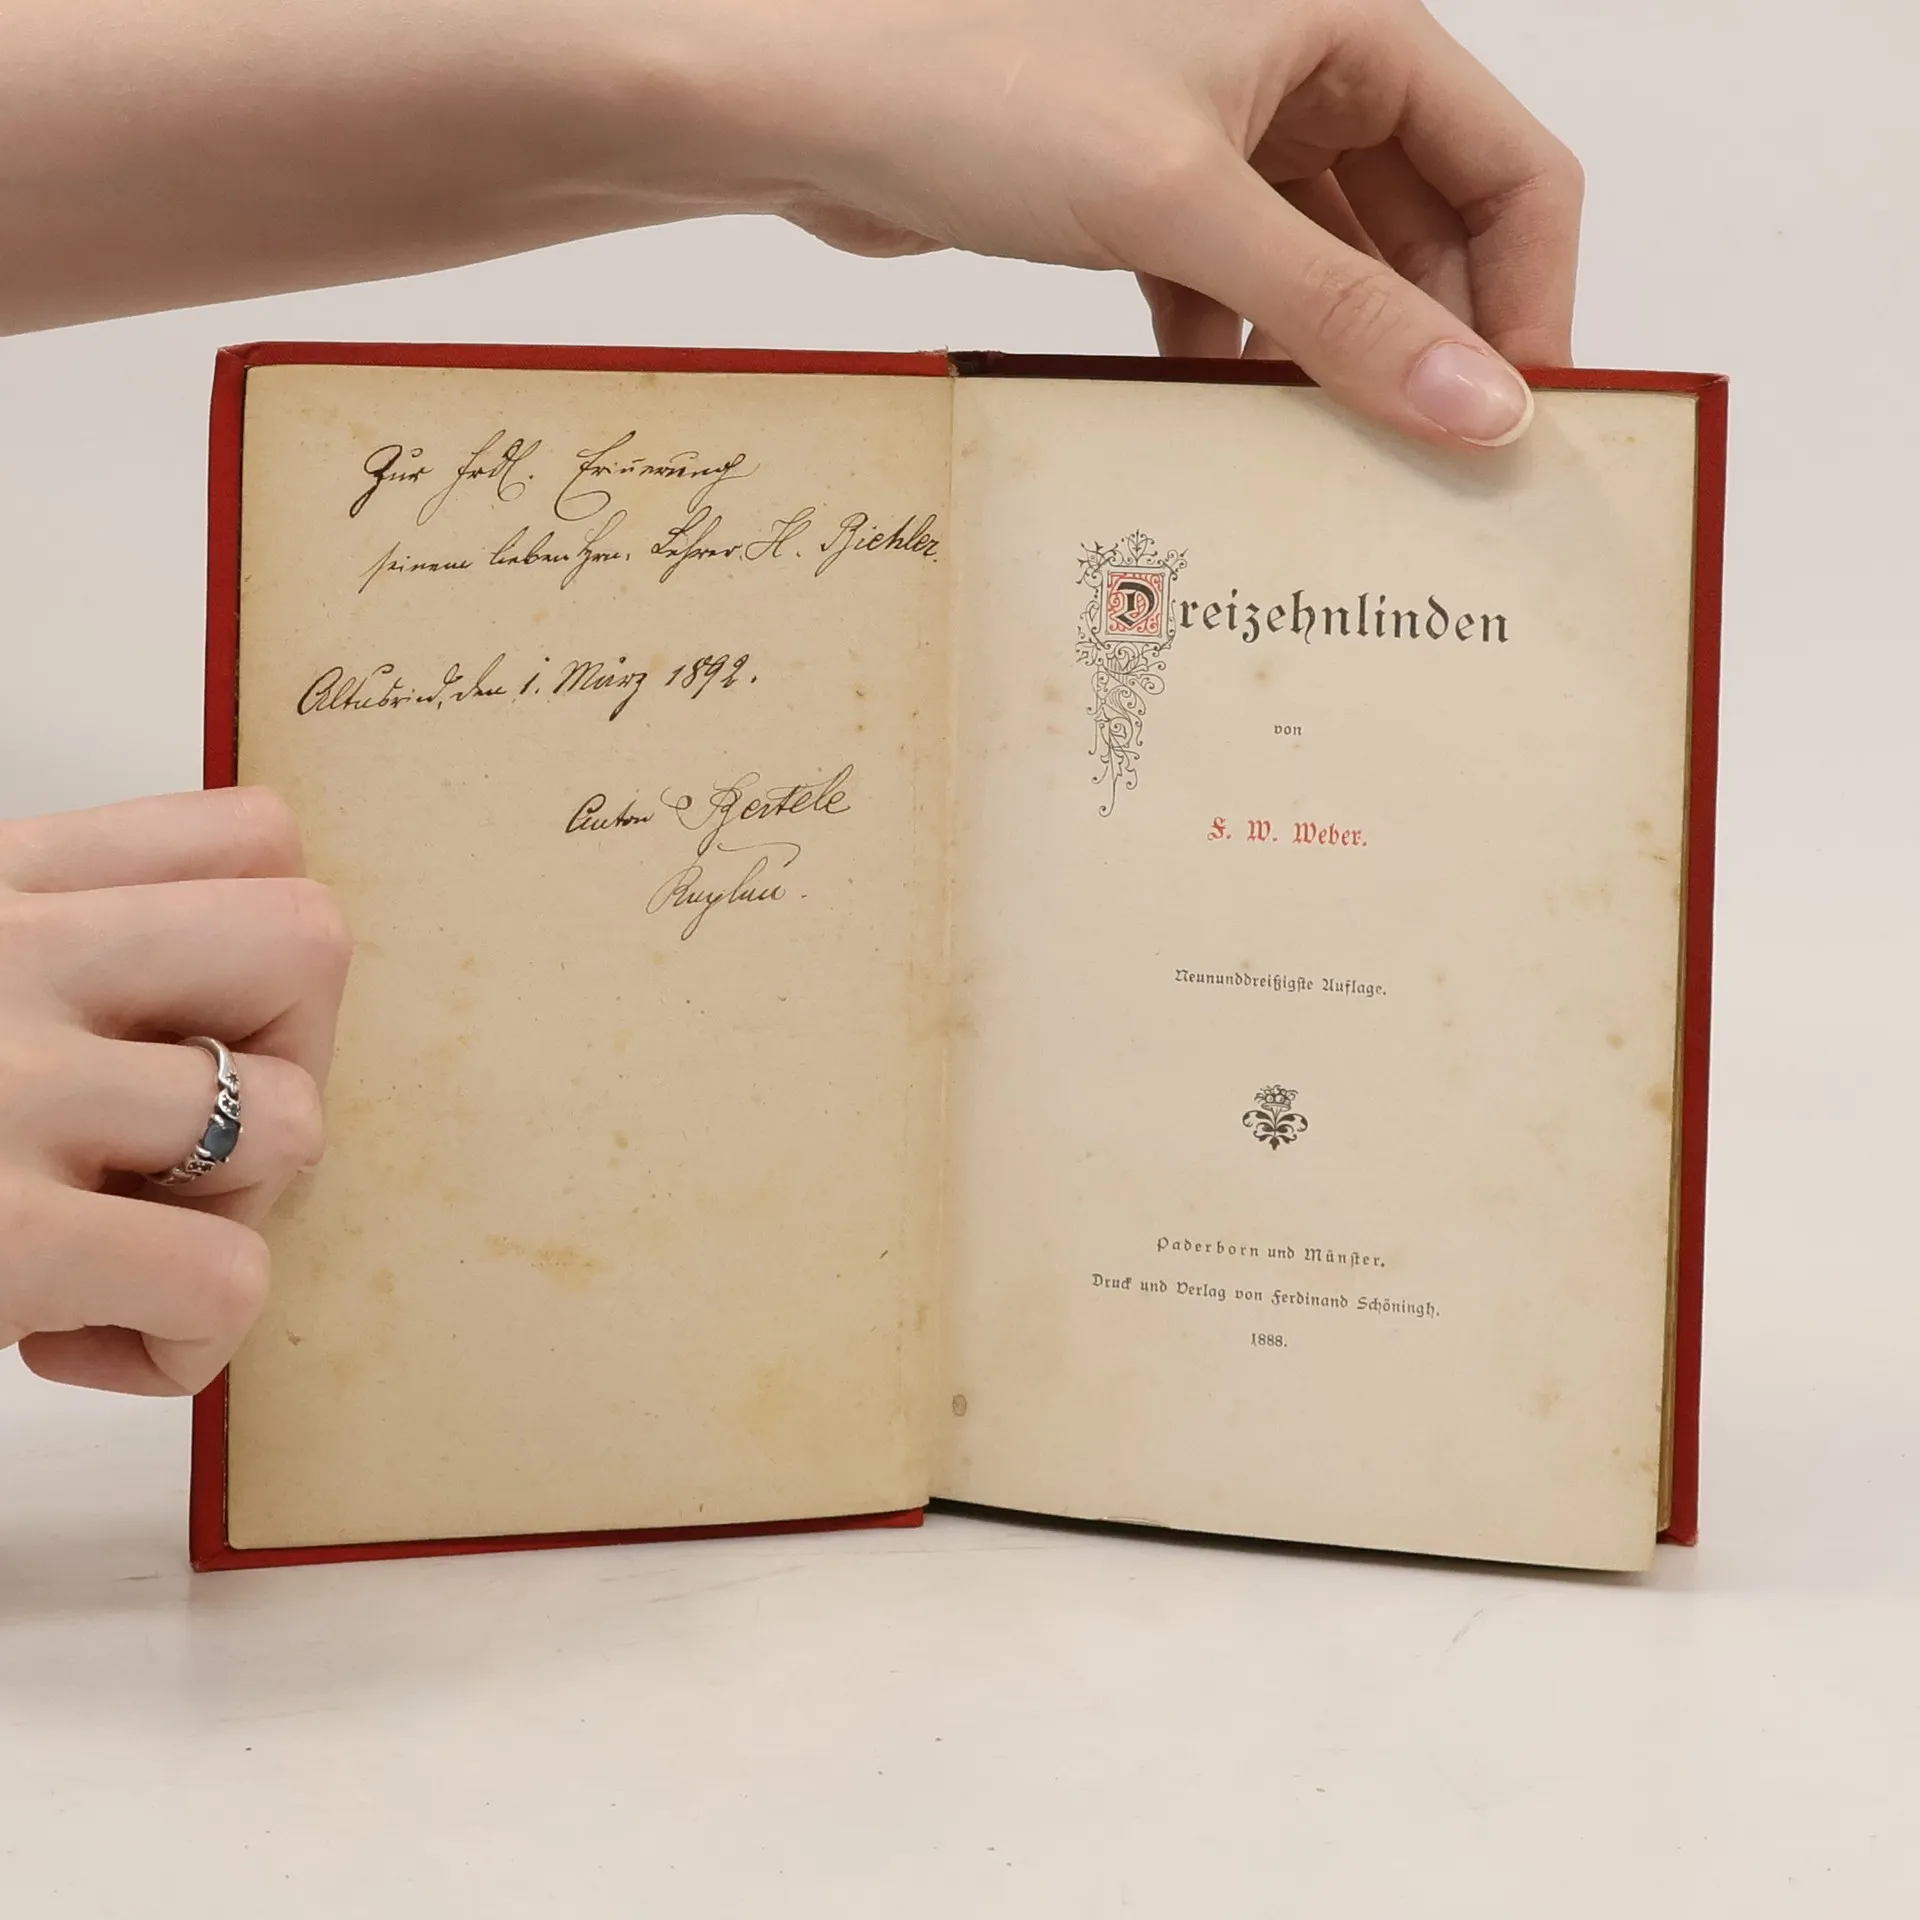 Zur frdl. Erinnerung
seinem lieben Hrn. Lehrer H. Biehler.
Altusried, den 1. März 1892.
Anton Bertele
Dreizehnlinden
von
F. W. Weber.
Neununddreißigste Auflage.
Paderborn und Münster.
Druck und Verlag von Ferdinand Schöningh.
1888.